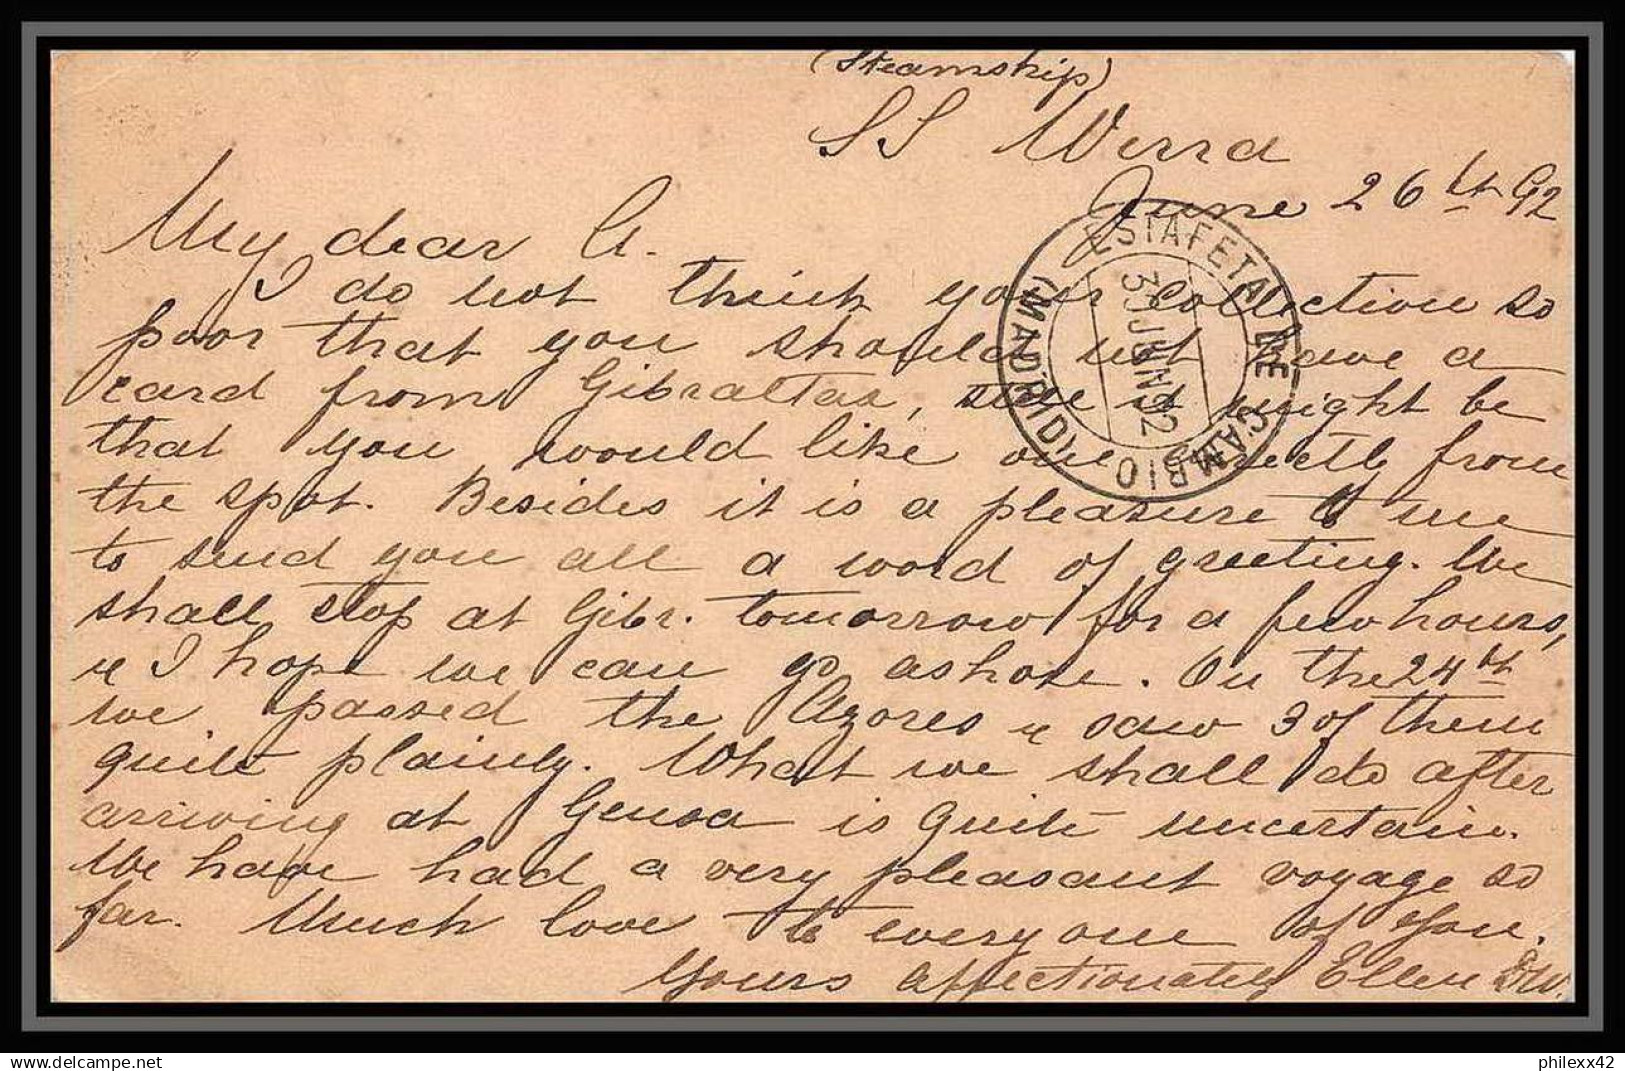 (Steamship)
SS Werra
June 26th 92
My dear A.
I do not think your collection so
poor that you should not have a
card from Gibraltar, still it might be
that you would like one directly from
the spot. Besides it is a pleasure to me
to send you all a word of greeting. We
shall stop at Gibr. tomorrow for a few hours,
& I hope we can go ashore. On the 24th
we passed the Azores & saw 3 of them
quite plainly. What we shall do after
arriving at Genoa is quite uncertain.
We have had a very pleasant voyage so
far. Much love to everyone of you.
Yours affectionately Ellen DW.
ESTAFETA DE CAMBIO
(MADRID)
30 JUN 92
philexx42